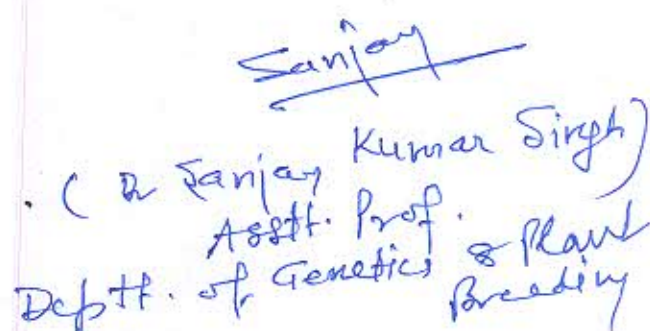 Sanjay
(Dr Sanjay Kumar Singh)
Asstt. Prof.
Deptt. of Genetics & Plant
Breeding